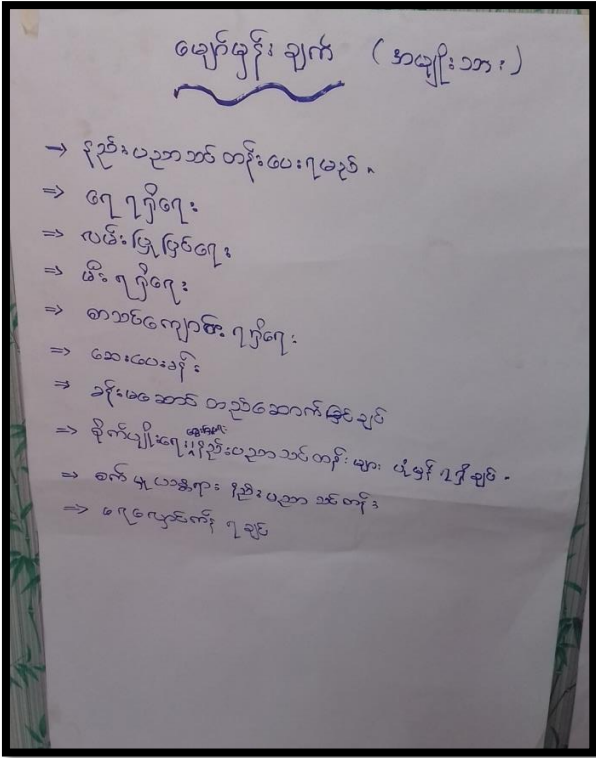 မျှော်မှန်းချက် (အမျိုးသား)
→ နည်းပညာသင်တန်းပေးရမည်.
⇒ ရေရရှိရေး
⇒ လမ်းပြုပြင်ရေး
⇒ မီးရရှိရေး
⇒ စာသင်ကျောင်းရရှိရေး
⇒ ဆေးပေးခန်း
⇒ ခန်းမဆောင် တည်ဆောက်ခြင်းချင်
⇒ စိုက်ပျိုးရေး နည်းပညာသင်တန်းများ ပုံမှန် ရရှိချင်.
⇒ စက်မှုယာန္တရား နည်းပညာ သင်တန်း
⇒ ရေလှောင်ကန် ရချင်